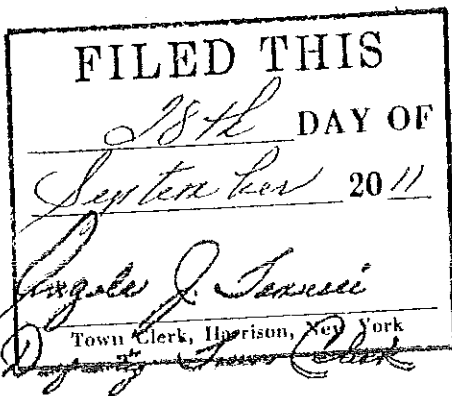 FILED THIS
28th DAY OF
September 20 11
Angela J.
Town Clerk, Harrison, New York
Deputy Town Clerk